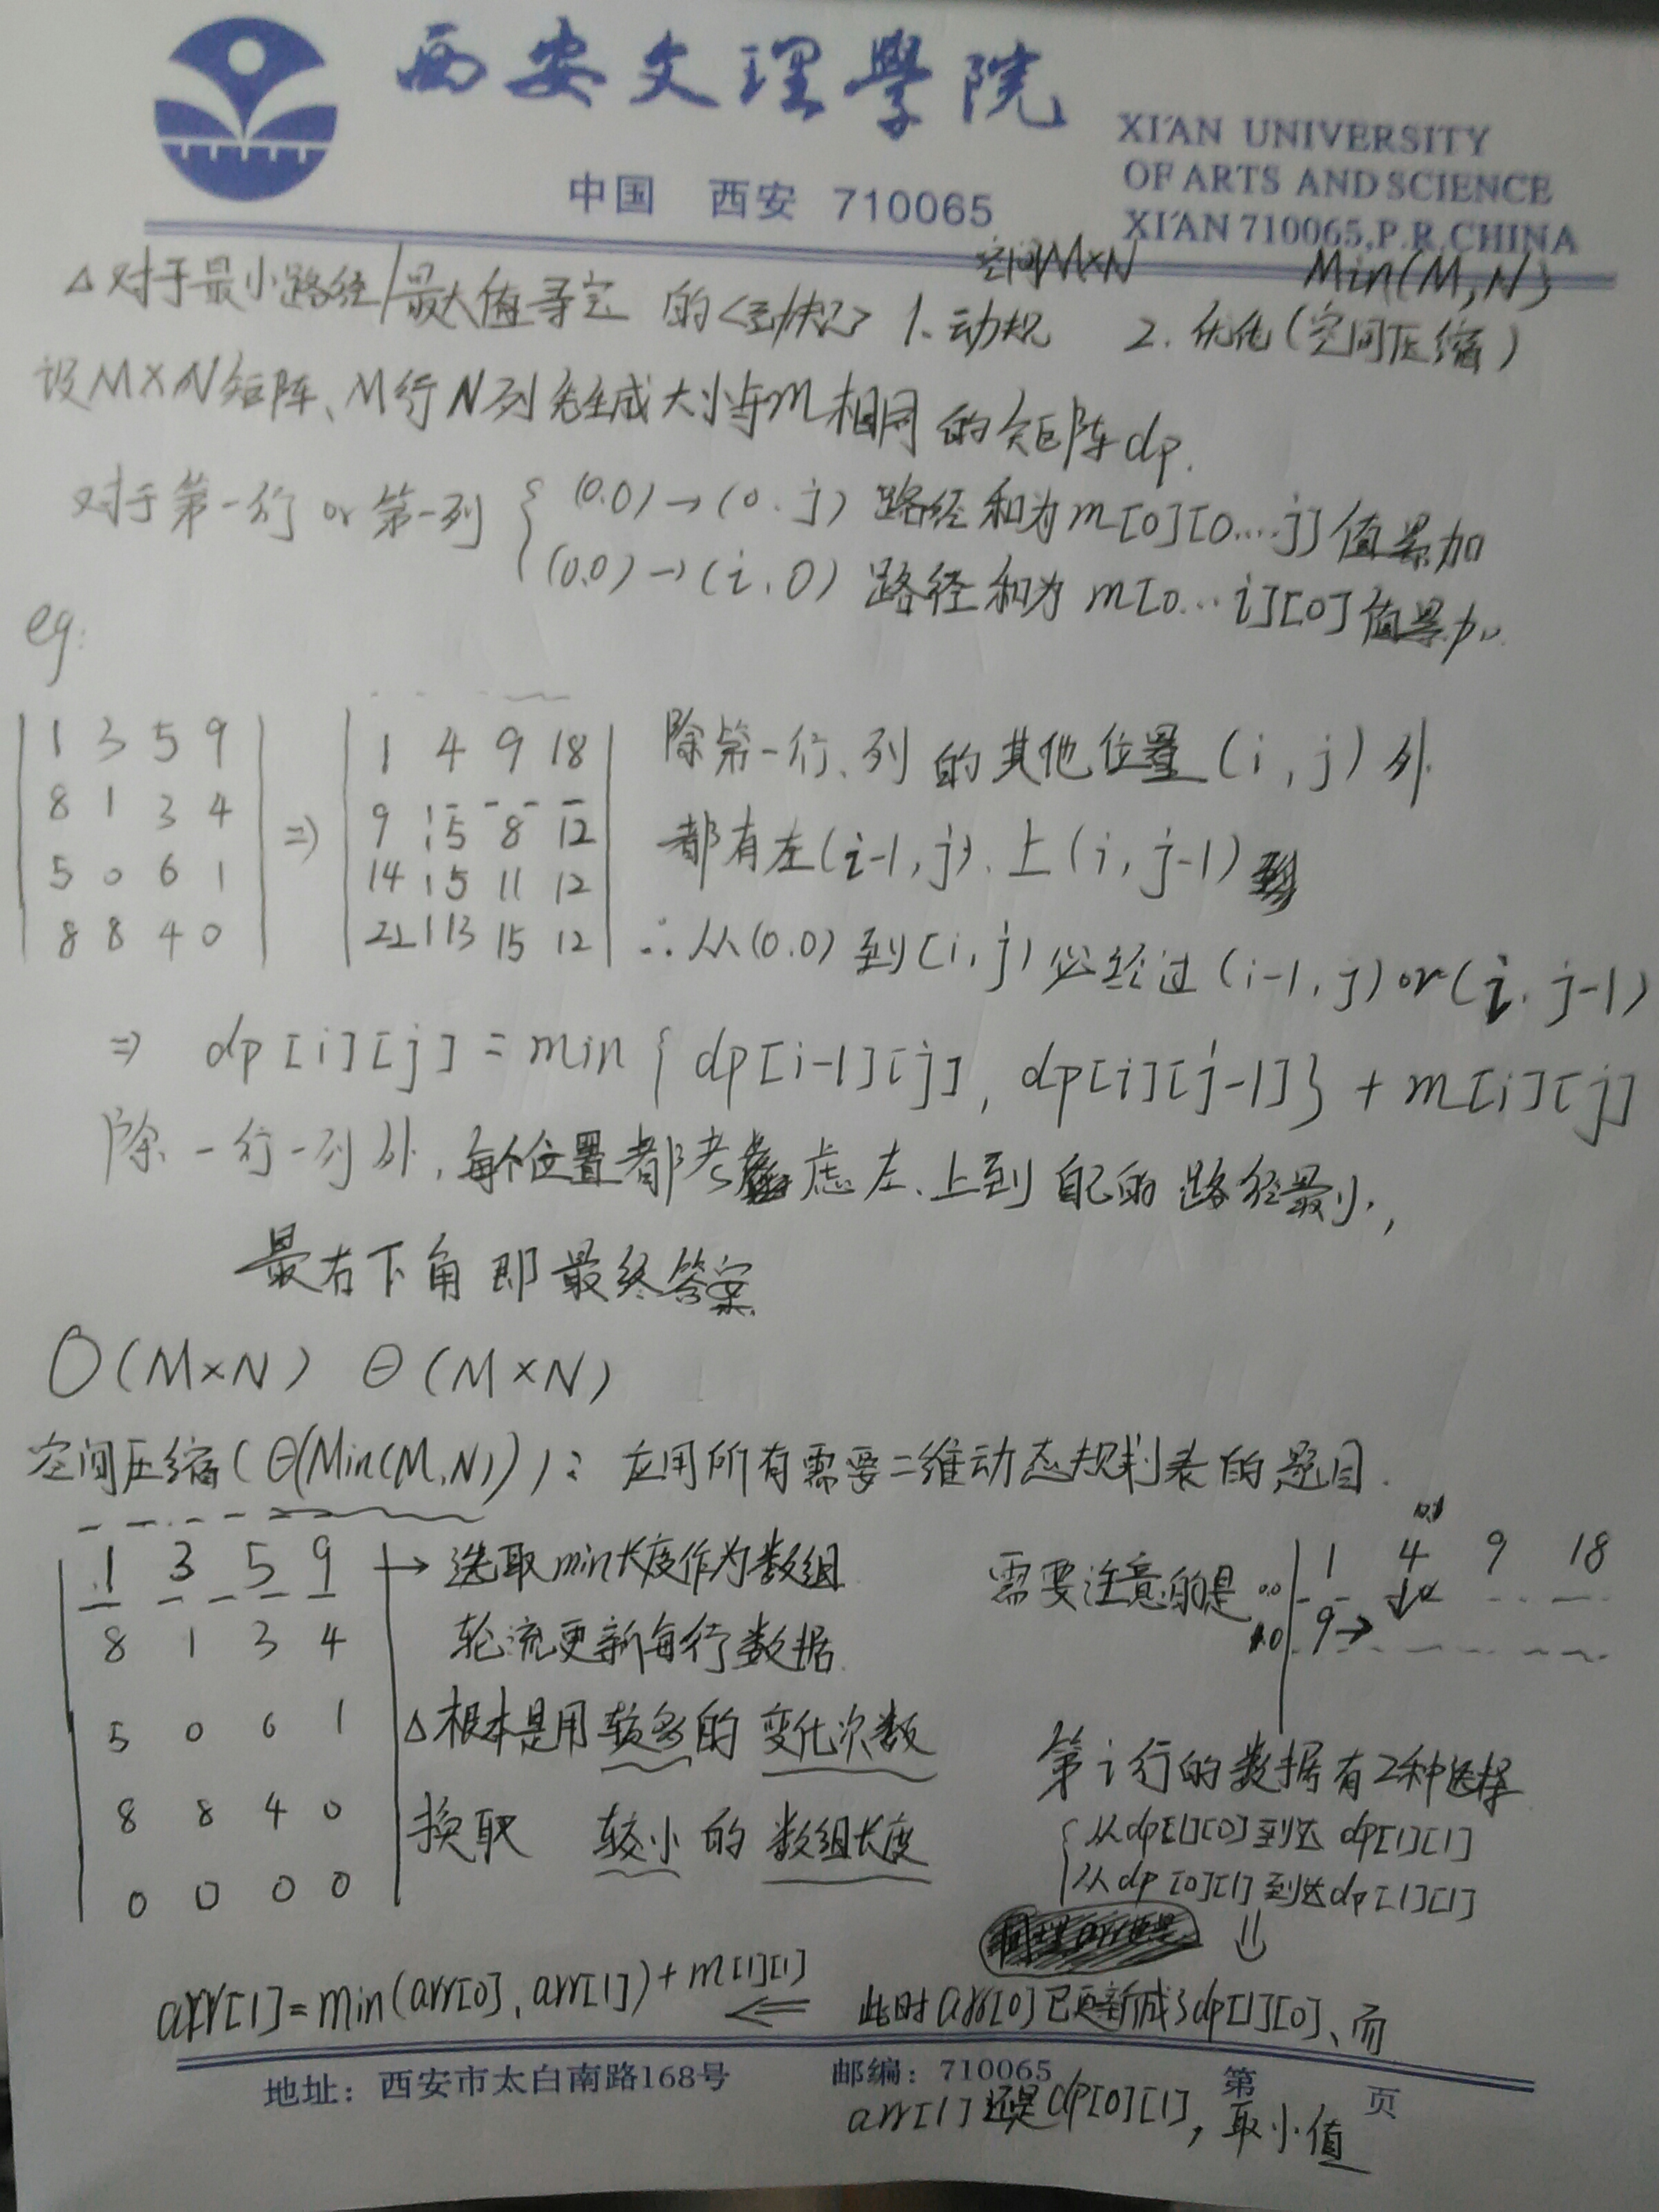 西安文理學院
中国 西安 710065
XI'AN UNIVERSITY
OF ARTS AND SCIENCE
XI'AN 710065,P.R.CHINA
空间M×N Min(M,N)
△对于最小路径/最大值寻宝 的<动规> 1.动规 2.优化(空间压缩)
设M×N矩阵、M行N列先生成大小与m相同的矩阵dp.
对于第一行or第一列 { (0.0)→(0.j) 路径和为m[0][0...j]值累加
(0.0)→(i.0) 路径和为m[0...i][0]值累加
eg:
1 3 5 9
8 1 3 4
5 0 6 1
8 8 4 0
⇒
1 4 9 18
9 5 8 12
14 5 11 12
22 13 15 12
除第一行、列的其他位置(i,j)外
都有左(i-1,j).上(i,j-1)
∴从(0.0)到(i,j)必经过(i-1,j)or(i.j-1)
⇒ dp[i][j]=min{dp[i-1][j],dp[i][j-1]}+m[i][j]
除一行一列外,每个位置都考虑左、上到自己的路径最小,
最右下角即最终答案
O(M×N) Θ(M×N)
空间压缩(Θ(Min(M,N))):应用所有需要二维动态规划表的题目.
1 3 5 9
8 1 3 4
5 0 6 1
8 8 4 0
0 0 0 0
→选取min长度作为数组
轮流更新每行数据
△根本是用较多的变化次数
换取 较小的数组长度
需要注意的是
0.0 1 4 9 18
1.0 9→
第i行的数据有2种选择
{从dp[1][0]到达dp[1][1]
从dp[0][1]到达dp[1][1]
⇓
此时arr[0]已更新成了dp[1][0]、而
arr[1]=min(arr[0],arr[1])+m[1][1] ⇐
地址：西安市太白南路168号 邮编：710065 第 页
arr[1]还是dp[0][1],取小值